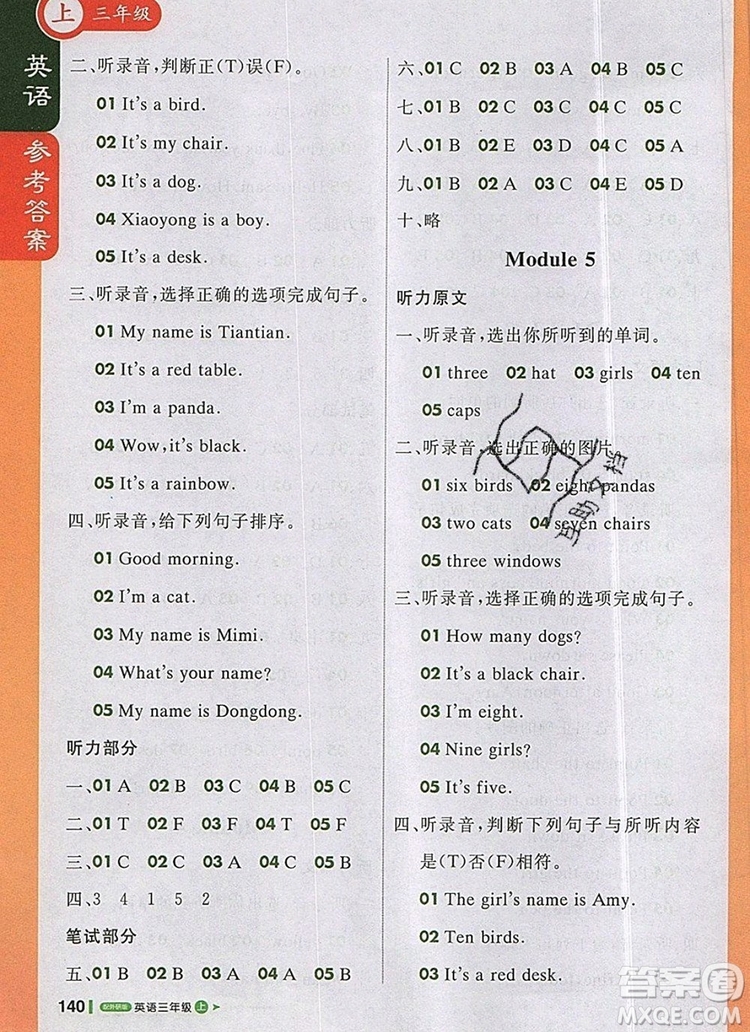 上 三年级
英语
参考答案
二、听录音,判断正(T)误(F)。
01 It's a bird.
02 It's my chair.
03 It's a dog.
04 Xiaoyong is a boy.
05 It's a desk.
三、听录音,选择正确的选项完成句子。
01 My name is Tiantian.
02 It's a red table.
03 I'm a panda.
04 Wow,it's black.
05 It's a rainbow.
四、听录音,给下列句子排序。
01 Good morning.
02 I'm a cat.
03 My name is Mimi.
04 What's your name?
05 My name is Dongdong.
听力部分
一、01 A 02 B 03 C 04 B 05 C
二、01 T 02 F 03 F 04 T 05 F
三、01 B 02 C 03 A 04 B 05 C
四、3 4 1 5 2
笔试部分
五、01 B 02 A 03 C 04 A 05 C
六、01 C 02 B 03 A 04 B 05 C
七、01 C 02 B 03 B 04 C 05 B
八、01 B 02 E 03 C 04 D 05 A
九、01 B 02 C 03 A 04 E 05 D
十、略
Module 5
听力原文
一、听录音,选出你所听到的单词。
01 three 02 hat 03 girls 04 ten
05 caps
二、听录音,选出正确的图片。
01 six birds 02 eight pandas
03 two cats 04 seven chairs
05 three windows
三、听录音,选择正确的选项完成句子。
01 How many dogs?
02 It's a black chair.
03 I'm eight.
04 Nine girls?
05 It's five.
四、听录音,判断下列句子与所听内容
是(T)否(F)相符。
01 The girl's name is Amy.
02 Ten birds.
03 It's a green cap.
140 配外研版 英语三年级 上
互助文档
答案圈
MXQE.COM